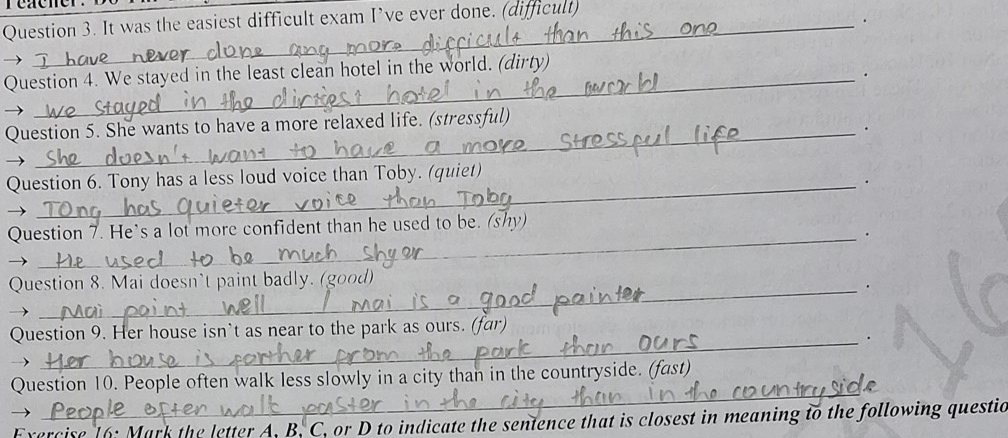 Question 3. It was the easiest difficult exam I've ever done. (difficult)
→ I have never done any more difficult than this one.
Question 4. We stayed in the least clean hotel in the world. (dirty)
→ we stayed in the dirtiest hotel in the world.
Question 5. She wants to have a more relaxed life. (stressful)
→ She doesn't want to have a more stressful life.
Question 6. Tony has a less loud voice than Toby. (quiet)
→ Tony has quieter voice than Toby.
Question 7. He's a lot more confident than he used to be. (shy)
→ He used to be much shyer.
Question 8. Mai doesn't paint badly. (good)
→ Mai paint well / mai is a good painter.
Question 9. Her house isn't as near to the park as ours. (far)
→ Her house is farther from the park than ours.
Question 10. People often walk less slowly in a city than in the countryside. (fast)
→ People often walk faster in the city than in the countryside
Exercise 16: Mark the letter A, B, C, or D to indicate the sentence that is closest in meaning to the following questio